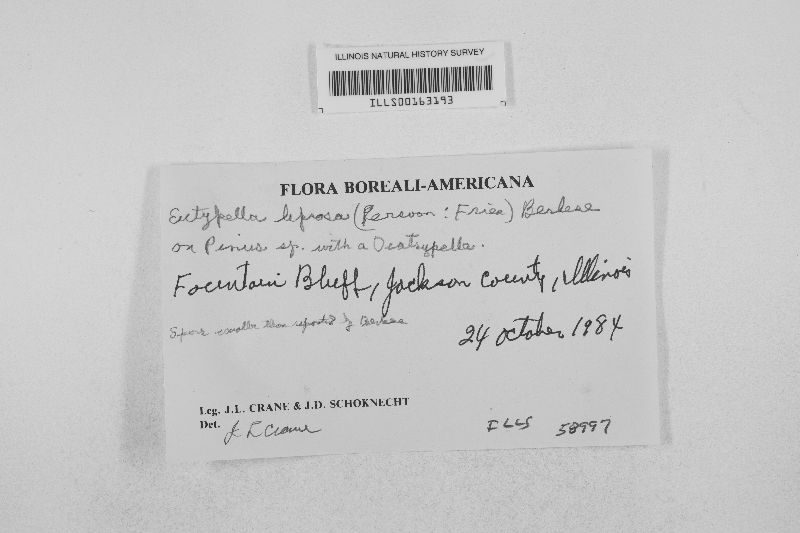 ILLINOIS NATURAL HISTORY SURVEY
ILLS00163193
FLORA BOREALI-AMERICANA
Eutypella leprosa (Persoon : Fries) Berlese
on Pinus sp. with a
Fountain Bluff, Jackson County, Illinois
Spore smaller than reported by Berlese
24 October 1984
Leg. J.L. CRANE & J.D. SCHOKNECHT
Det. J L Crane
ILLS 58997